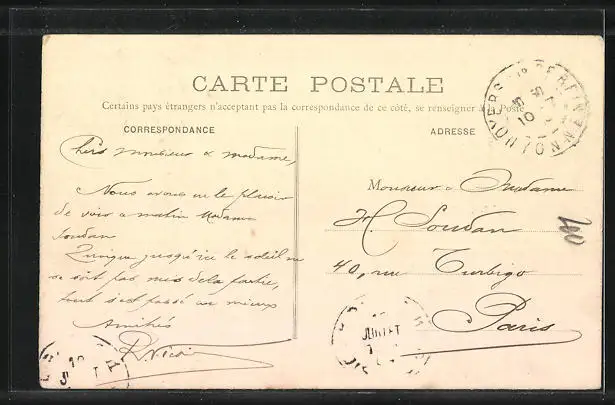 CARTE POSTALE
Certains pays étrangers n'acceptant pas la correspondance de ce côté, se renseigner à la Poste
CORRESPONDANCE
ADRESSE
Chers monsieur & madame,
Nous avons eu le plaisir
de voir ce matin Madame
Soudan
Quoique jusqu'ici le soleil ne
se soit pas mis de la partie,
tout s'est passé au mieux
Amitiés
Monsieur & Madame
H. Soudan
40, rue Turbigo
Paris
JUILLET